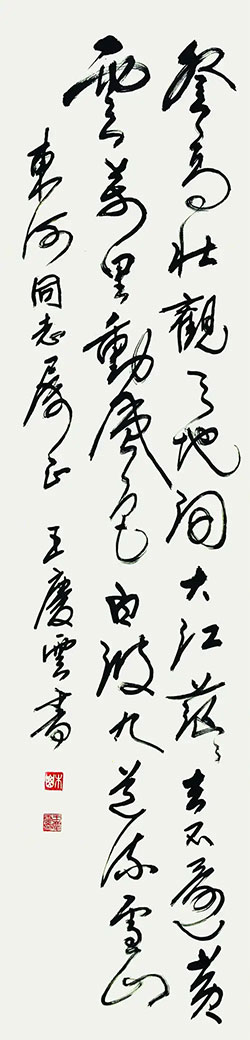 登高壮觀天地间大江茫茫去不還黄
雲萬里動風色白波九道流雪山
東河同志屬正 王慶雲書